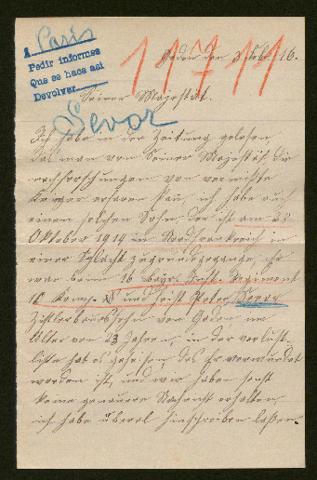 A París
Pedir informes
Que es hace asi
Devolver
11711
Seiner Majestät.
Sevor
Ich habe in der Zeitung gelesen
das man von Seiner Majestät die
nachforschungen von vermißte
Krieger erfaren kan, ich habe auch
einen solchen Sohn, der ist am 28
Oktober 1914 in Nordfrankreich in
einer Schlacht zugrundegegangen, Er
war beim 16 bayr. Regiment
10 Komp. und heist Peter
von im
Alter von 23 Jahren, in der verlust-
liste hab es geheisen das Er verwundet
worden ist, und wir haben sonst
keine genauere Nachricht erhalten,
ich habe überal hinschreiben laßen.